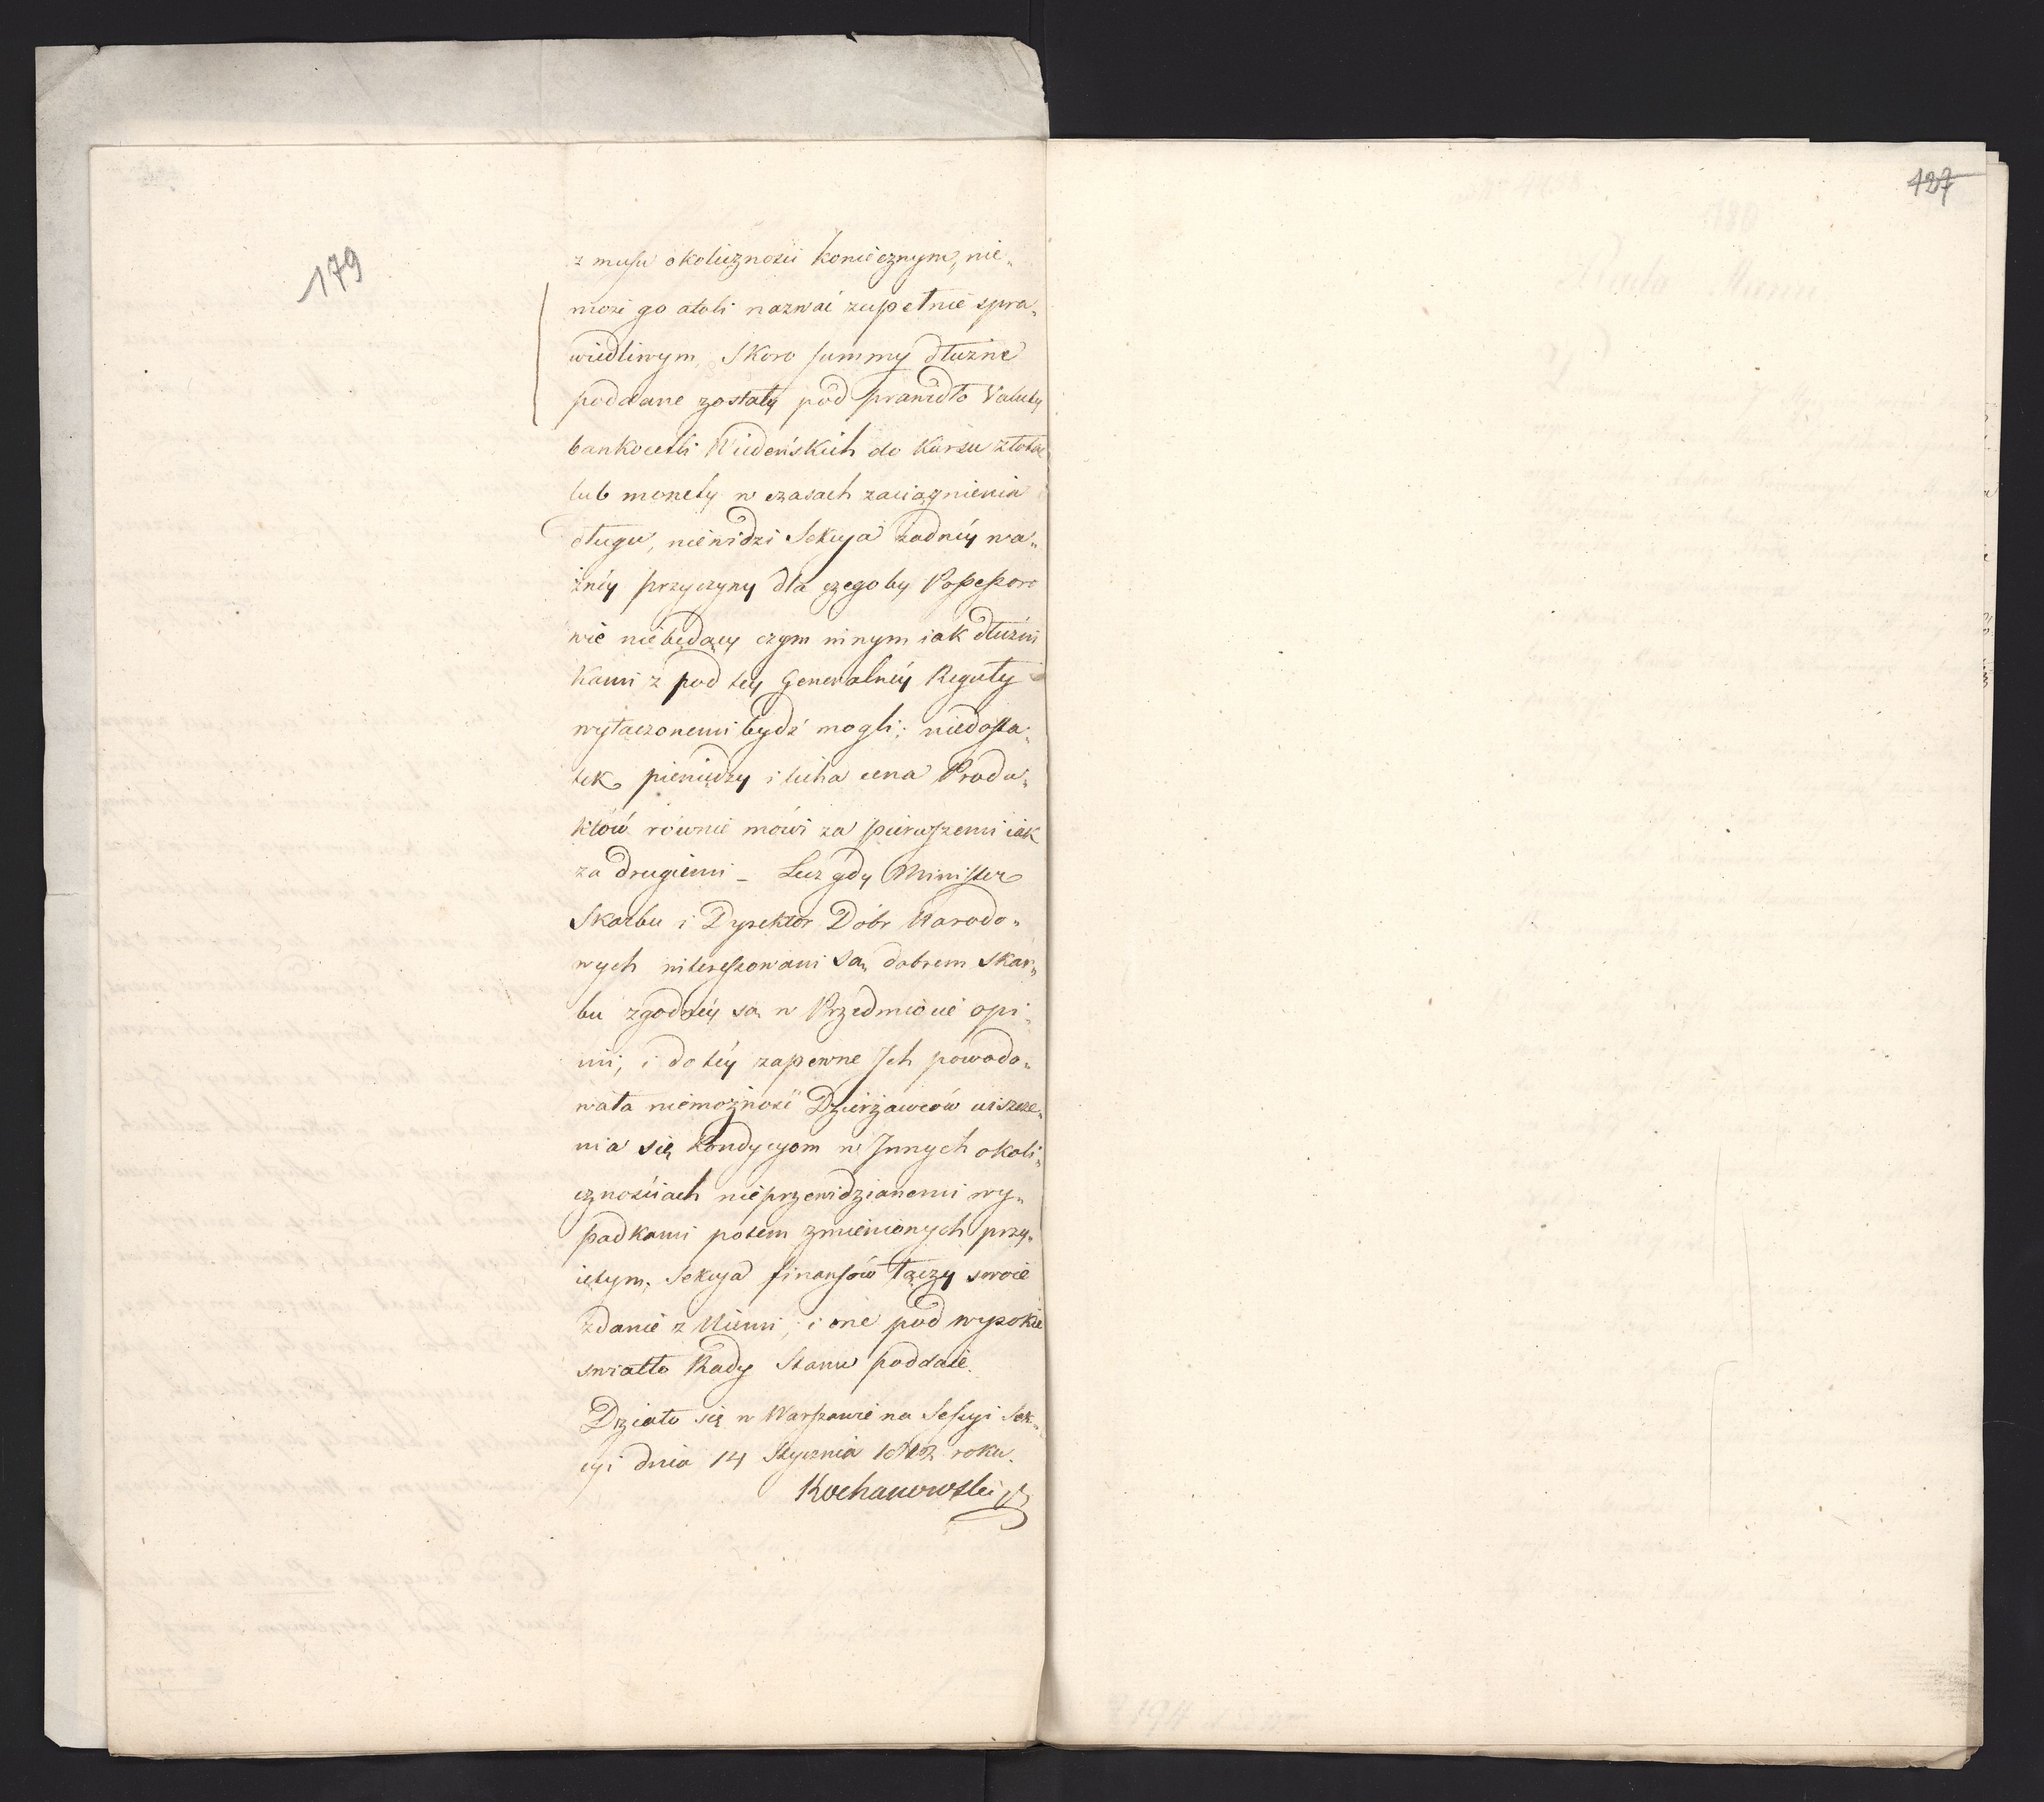 179
427
z musu okoliczności koniecznym, nie„
może go atoli nazwać zupełnie spra„
wiedliwym, Skoro summy dłużne
poddane zostały pod prawidło Valuty
bankocetli Wiedeńskich do Kursu złota
lub monety w czasach zaciągnienia
długu, niewidzi Sekcya żadnéy wa„
żnéy przyczyny dla czegoby Possessoro
wie niebędący czym innym iak dłużni
kami z pod tey Generalnéy Reguły
wyłączonemi bydź mogli; niedosta„
tek pieniędzy i licha cena Produ„
któw równie mówi za pierwszemi iak
za drugiemi – Lecz gdy Minister
Skarbu i Dyrektor Dóbr Narodo„
wych interessowani są dobrem Skar„
bu zgodnéy są w Przedmiocie opi„
nii, i do téy zapewne Ich powodo„
wała niemożność Dzierżawców uiszcze„
nia się Kondycyom w Innych okoli„
cznościach nieprzewidzianemi wy„
padkami potem zmienionych przy„
iętym, Sekcya finansów łączy swoie
zdanie z Niemi, i one pod wysokie
światło Rady Stanu poddaie.
Działo się w Warszawie na Sessyi Sek„
cyi dnia 14 Stycznia 1812 roku.
Kochanowski